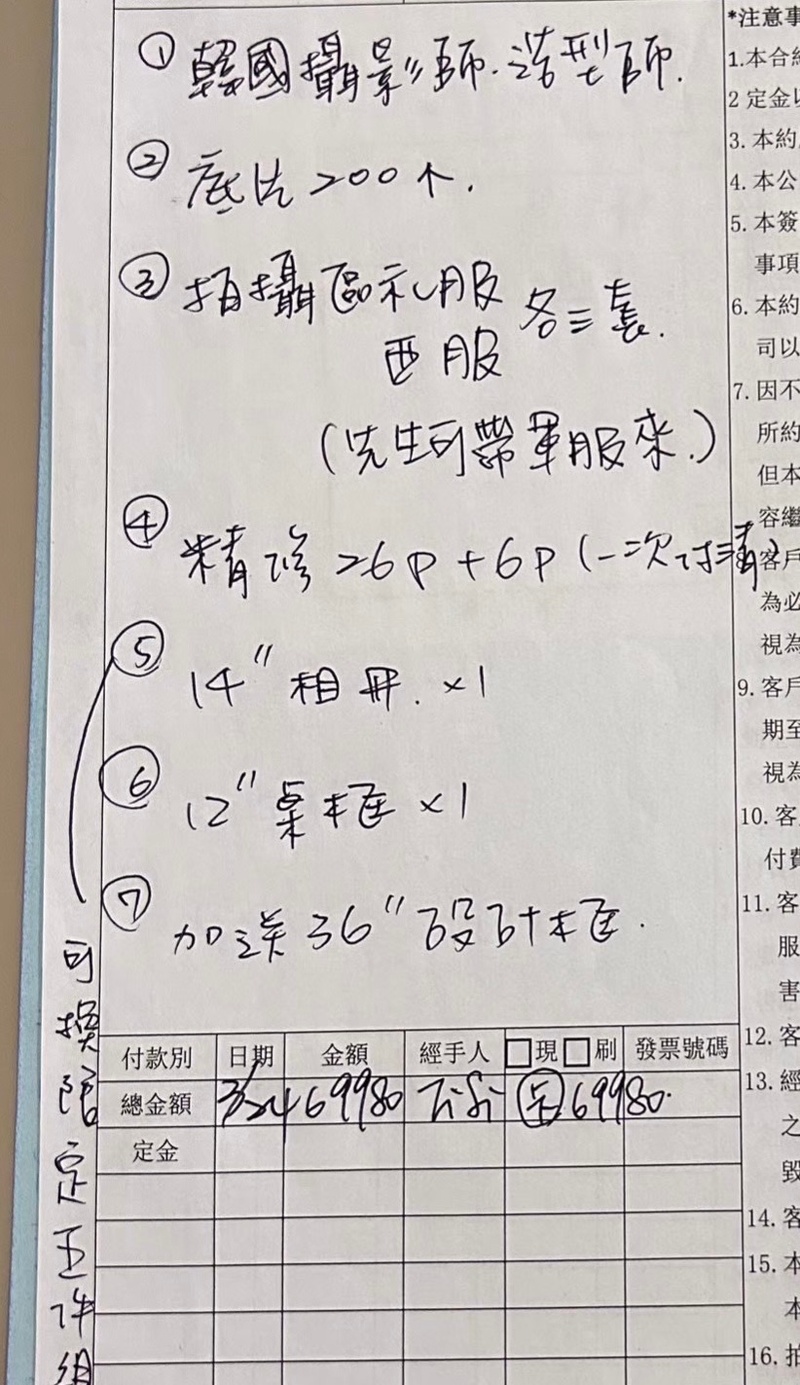 ① 韓國攝影師.造型師.
② 底片200个.
③ 拍攝區礼服
西服 各三套.
(先生可帶軍服來.)
④ 精修26P+6P(一次付清)
⑤ 14" 相冊.x1
⑥ 12" 桌框x1
⑦ 加送36"設計框.
可換限定五件組
付款別 日期 金額 經手人 □現□刷 發票號碼
總金額 3/24 69980 TiSi 卡 69980.
定金
*注意事
1.本合約
2 定金以
3. 本約
4. 本公
5. 本簽
事項
6. 本約
司以
7. 因不
所約
但本
容繼
客戶
為必
視為
9. 客戶
期至
視為
10. 客
付費
11. 客
服
害
12. 客
13. 經
之
毀
14. 客
15. 本
本
16. 拍